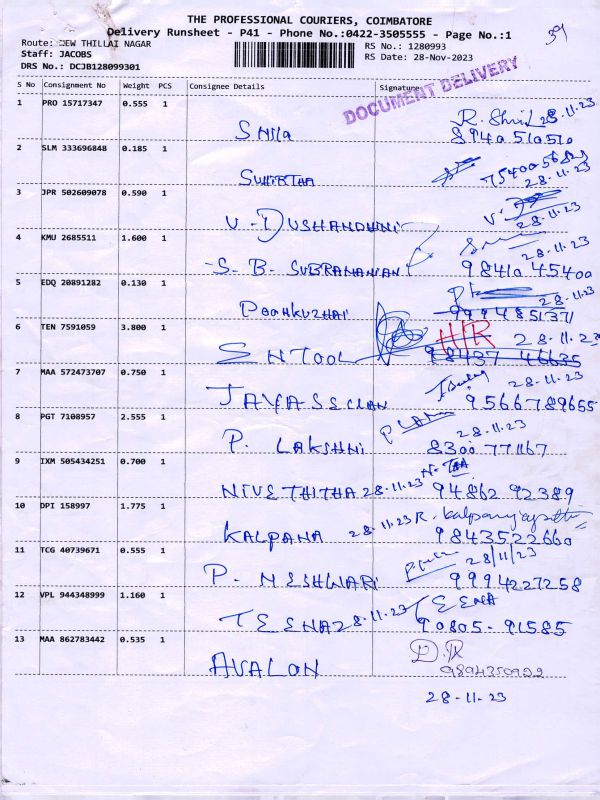 THE PROFESSIONAL COURIERS, COIMBATORE
Delivery Runsheet - P41 - Phone No.:0422-3505555 - Page No.:1
39
Route: DEW THILLAI NAGAR
RS No.: 1280993
Staff: JACOBS
RS Date: 28-Nov-2023
DRS No.: DCJB128099301
DOCUMENT DELIVERY
S No Consignment No Weight PCS Consignee Details Signature
1 PRO 15717347 0.555 1
R. 28.11.23
8940 51051
2 SLM 333696848 0.185 1
28.11.23
3 JPR 502609078 0.590 1
28.11.23
4 KMU 2685511 1.600 1
28.11.23
S. B. SUBRAMANIAN 98410 45400
5 EDQ 20891282 0.130 1
28.11.23
9994851371
6 TEN 7591059 3.800 1
H/R 28.11.23
98437 46635
7 MAA 572473707 0.750 1
28.11.23
JAYASEELAN 9566789655
8 PGT 7108957 2.555 1
28.11.23
P. LAKSHMI 8300 771167
9 IXM 505434251 0.700 1
NIVETHITHA 28.11.23 94862 92389
10 DPI 158997 1.775 1
28.11.23 R. kalpana
KALPANA 9843522660
11 TCG 40739671 0.555 1
28/11/23
P. MESHWARI 9994227258
12 VPL 944348999 1.160 1
TEENA
TEENA 28.11.23 90805-91585
13 MAA 862783442 0.535 1
AVALON
28.11.23